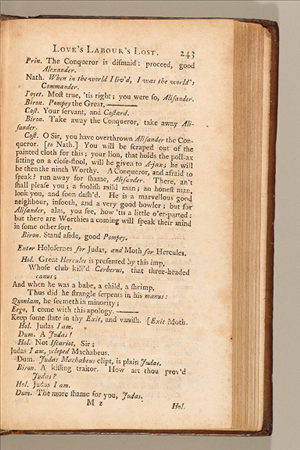 LOVE'S LABOUR'S LOST. 243
Prin. The Conqueror is dismaid: proceed, good
Alexander.
Nath. When in the world I liv'd, I was the world's
Commander.
Boyet. Most true, 'tis right; you were so, Alisander.
Biron. Pompey the Great,
Cost. Your servant, and Costard.
Biron. Take away the Conqueror, take away Ali-
sander.
Cost. O Sir, you have overthrown Alisander the Con-
queror. [to Nath.] You will be scraped out of the
painted cloth for this; your lion, that holds the poll-ax
sitting on a close-stool, will be given to A-jax; he will
be then the ninth Worthy. A Conqueror, and afraid to
speak? run away for shame, Alisander. There, an't
shall please you; a foolish mild man; an honest man,
look you, and soon dash'd. He is a marvellous good
neighbour, insooth, and a very good bowler; but for
Alisander, alas, you see, how 'tis a little o'er-parted:
but there are Worthies a coming will speak their mind
in some other sort.
Biron. Stand aside, good Pompey.
Enter Holofernes for Judas, and Moth for Hercules.
Hol. Great Hercules is presented by this imp,
Whose club kill'd Cerberus, that three-headed
canus;
And when he was a babe, a child, a shrimp,
Thus did he strangle serpents in his manus:
Quoniam, he seemeth in minority;
Ergo, I come with this apology.
Keep some state in thy Exit, and vanish. [Exit Moth.
Hol. Judas I am.
Dum. A Judas!
Hol. Not Iscariot, Sir;
Judas I am, ycleped Machabeus.
Dum. Judas Machabeus clipt, is plain Judas.
Biron. A kissing traitor. How art thou prov'd
Judas?
Hol. Judas I am.
Dum. The more shame for you, Judas.
M 2 Hol.